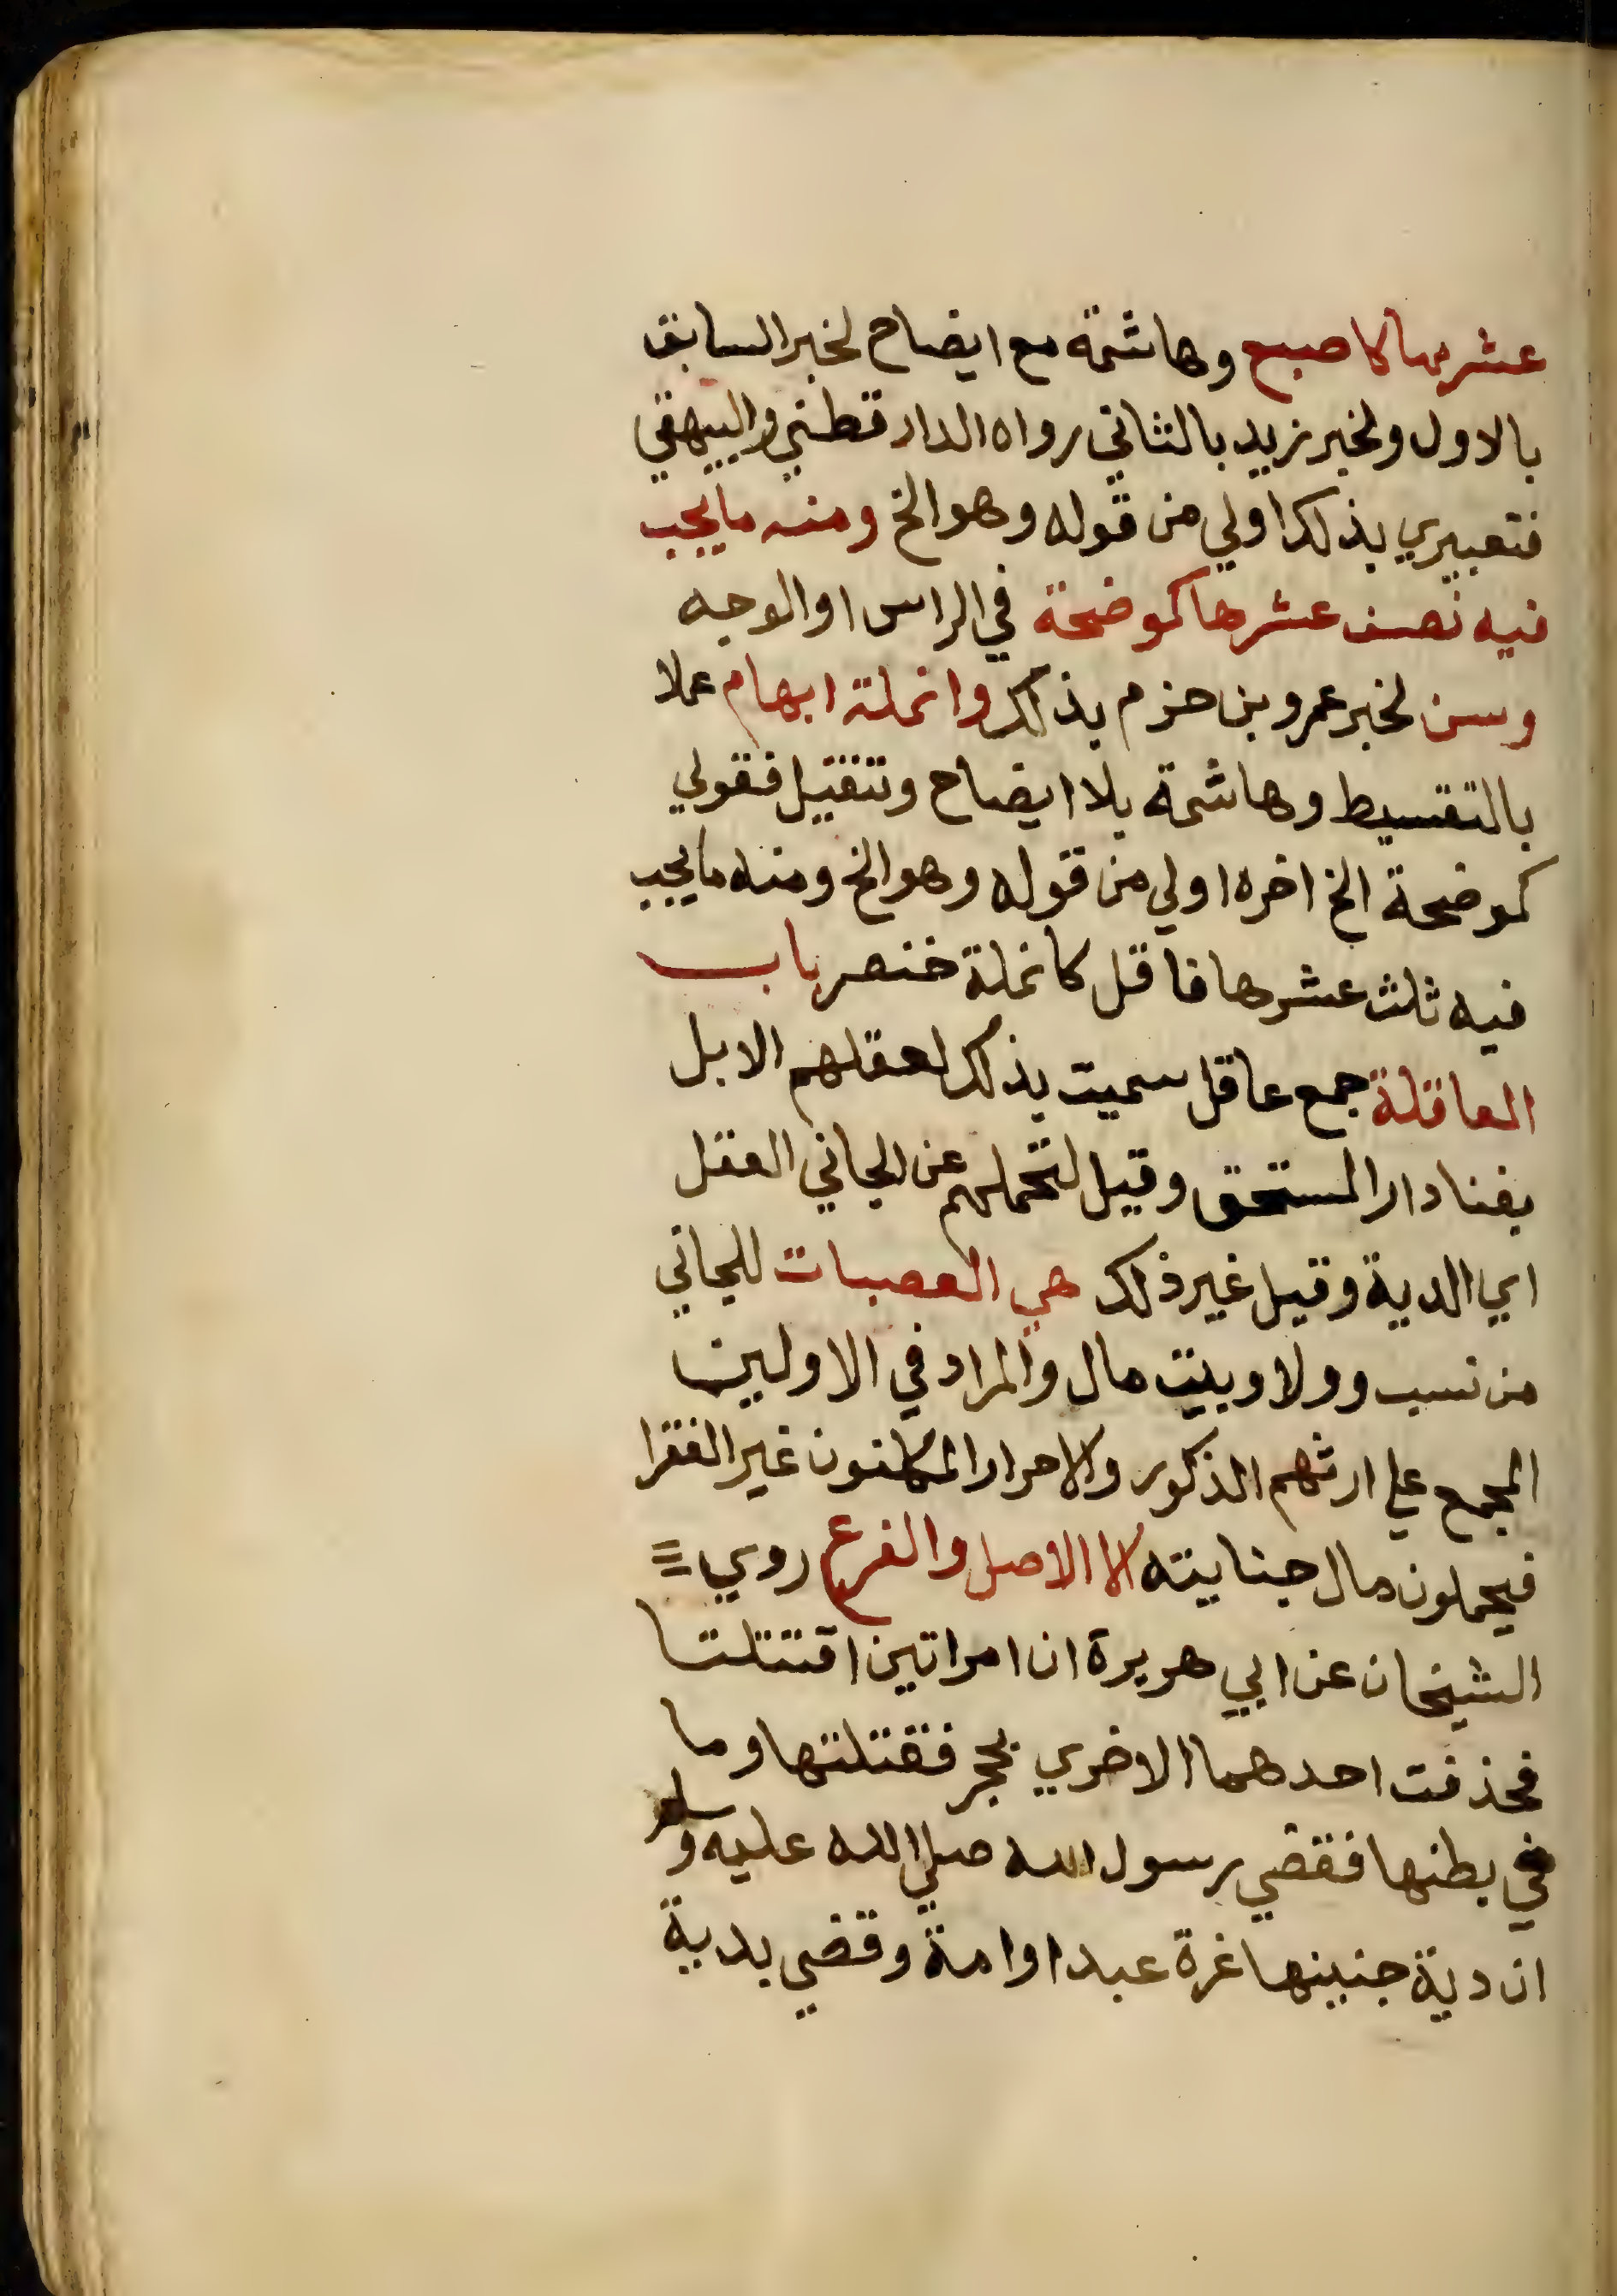 عشرها كاصبع وهاشمة مع ايضاح لخبر السابق
بالاول ولخبر زيد بالثاني رواه الدارقطني والبيهقي
فتعبيري بذلك اولي من قوله وهو الخ ومنه ما يجب
فيه نصف عشرها كموضحة في الراس او الوجه
وسن لخبر عمرو بن حزم بذلك وانملة ابهام عملا
بالتقسيط وهاشمة بلا ايضاح وتنقيل فقولي
كموضحة الخ اخره اولي من قوله وهو الخ ومنه ما يجب
فيه ثلث عشرها فاقل كانملة خنصر باب
العاقلة جمع عاقل سميت بذلك لعقلهم الابل
بفنا دار المستحق وقيل لتحملهم عن الجاني العقل
اي الدية وقيل غير ذلك هي العصبات للجاني
من نسب وولا وبيت مال والمراد في الاولين
المجمع علي ارثهم الذكور والاحرار المكلفون غير الفقرا
فيحملون مال جنايته الا الاصل والفرع روي
الشيخان عن ابي هريرة ان امراتين اقتتلتا
فحذفت احدهما الاخري بحجر فقتلتها وما
في بطنها فقضي رسول الله صلي الله عليه وسلم
ان دية جنينها غرة عبد او امة وقضي بدية